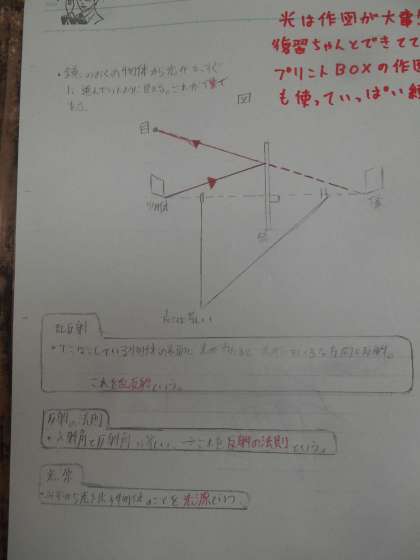 光は作図が大事
復習ちゃんとできてて
プリントBOXの作図
も使っていっぱい練
・鏡のおくの物体から光がまっすぐ
に進んでいたように見える。これが像で
ある。
図
目
物体
鏡
像
長さは等しい
乱反射
・でこぼこしている物体の表面に光が
これを乱反射という。
反射の法則
・入射角と反射角は等しい。→これを反射の法則という。
光源
・みずから光を出す物体のことを光源という。